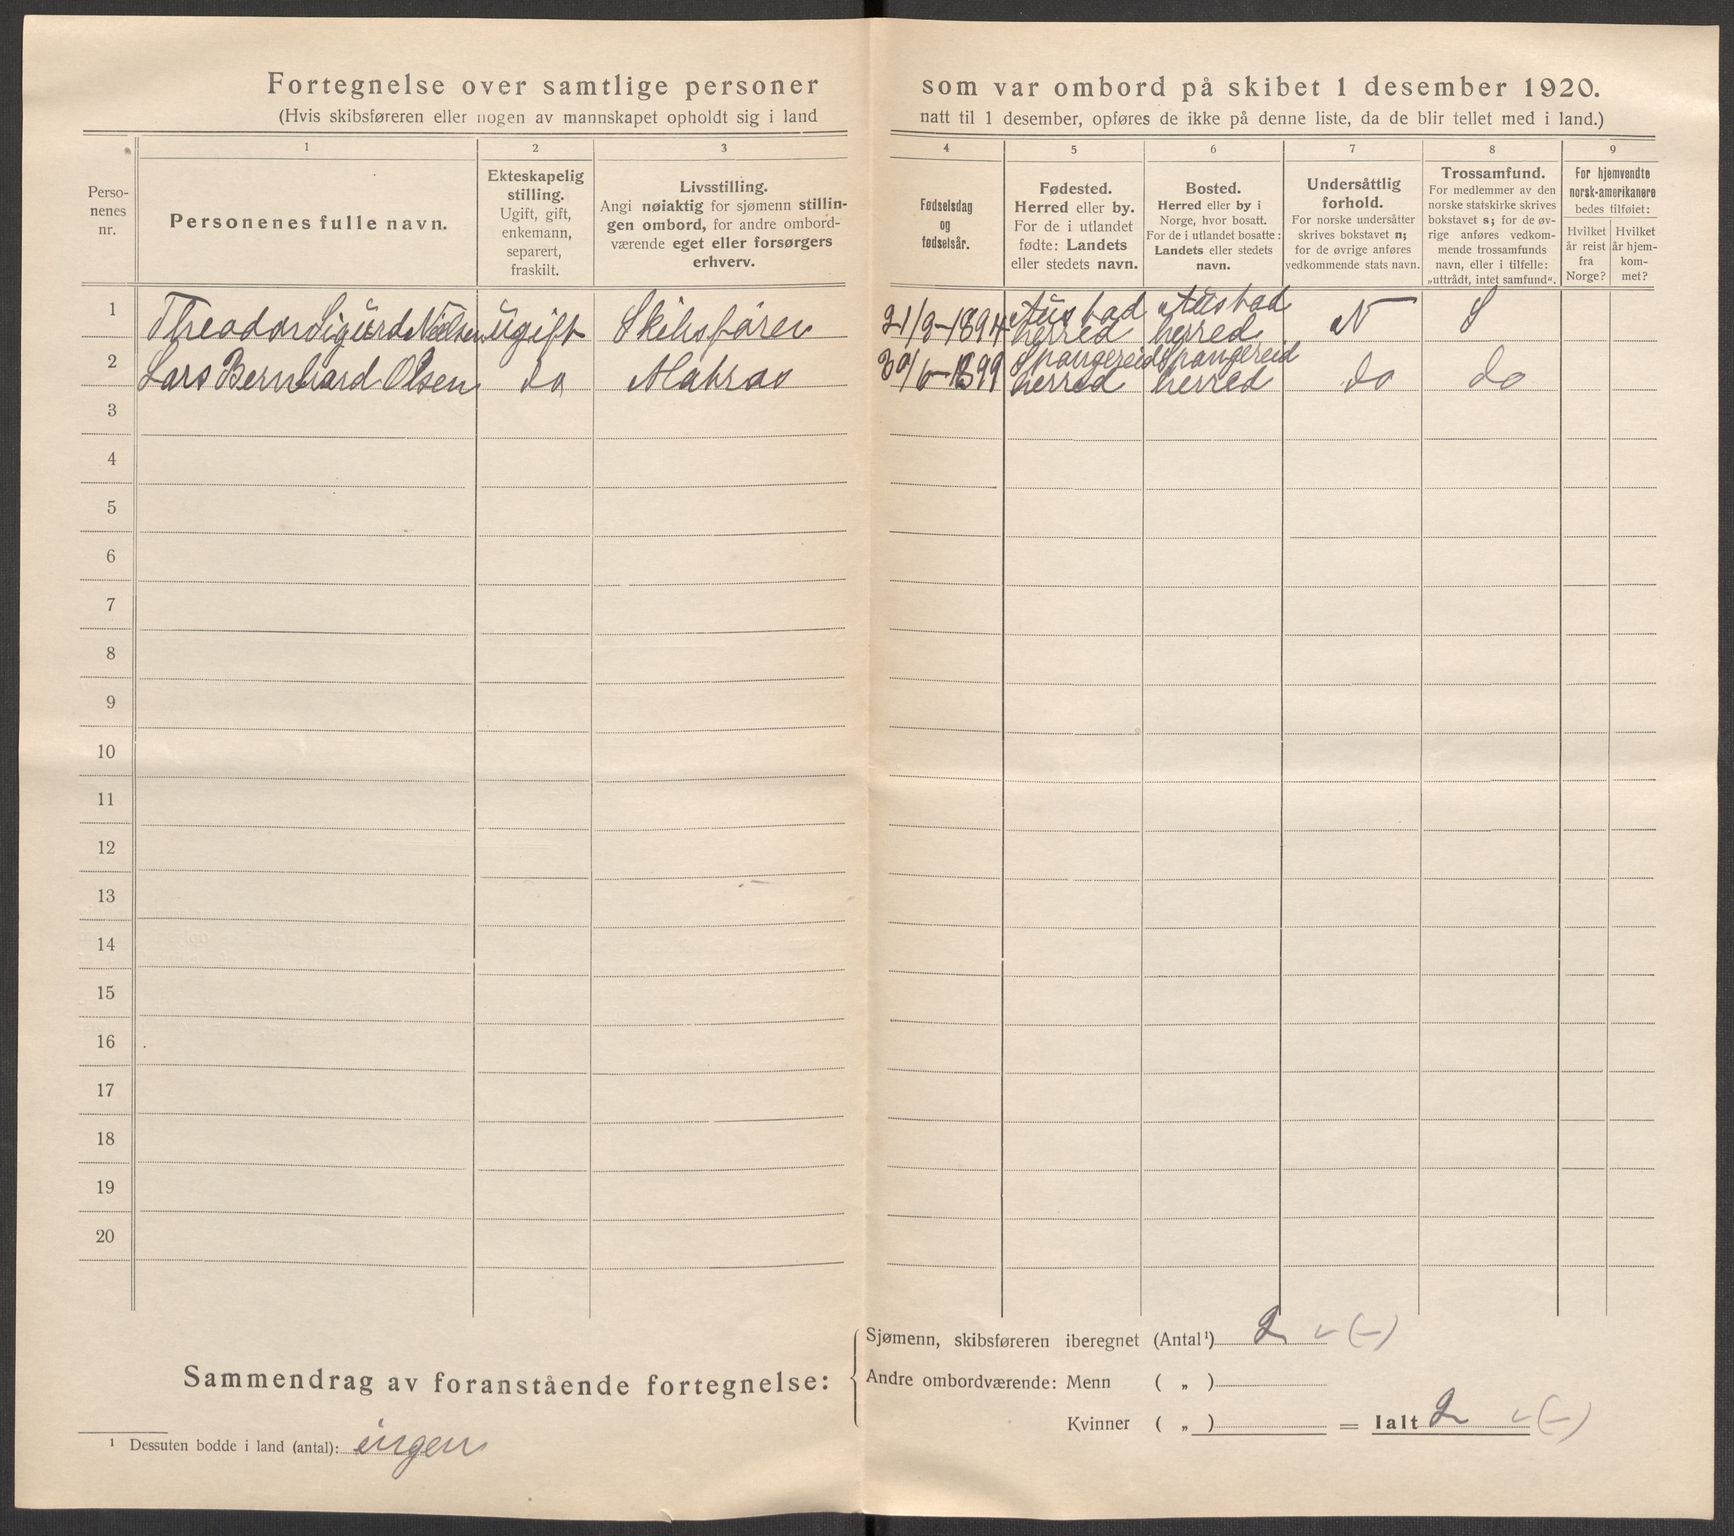 Fortegnelse over samtlige personer som var ombord på skibet 1 desember 1920.
(Hvis skibsføreren eller nogen av mannskapet opholdt sig i land natt til 1 desember, opføres de ikke på denne liste, da de blir tellet med i land.)
1 2 3 4 5 6 7 8 9
Perso-
nenes
nr.
Personenes fulle navn.
Ekteskapelig
stilling.
Ugift, gift,
enkemann,
separert,
fraskilt.
Livsstilling.
Angi nøiaktig for sjømenn stillin-
gen ombord, for andre ombord-
værende eget eller forsørgers
erhverv.
Fødselsdag
og
fødselsår.
Fødested.
Herred eller by.
For de i utlandet
fødte: Landets
eller stedets navn.
Bosted.
Herred eller by i
Norge, hvor bosatt.
For de i utlandet bosatte:
Landets eller stedets
navn.
Undersåttlig
forhold.
For norske undersåtter
skrives bokstavet n;
for de øvrige anføres
vedkommende stats navn.
Trossamfund.
For medlemmer av den
norske statskirke skrives
bokstavet s; for de øv-
rige anføres vedkom-
mende trossamfunds
navn, eller i tilfelle:
„uttrådt, intet samfund“.
For hjemvendte
norsk-amerikanere
bedes tilføiet:
Hvilket
år reist
fra
Norge?
Hvilket
år hjem-
kom-
met?
1 Theodor Sigurd Nielsen ugift Skibsfører 21/8-1894 Austad herred Austad herred N S
2 Lars Bernhard Olsen do Matros 30/6-1899 Spangereid herred Spangereid herred do do
3
4
5
6
7
8
9
10
11
12
13
14
15
16
17
18
19
20
Sammendrag av foranstående fortegnelse:
Sjømenn, skibsføreren iberegnet (Antal¹) 2 (-)
Andre ombordværende: Menn ( „ )
Kvinner ( „ ) = Ialt 2 (-)
¹ Dessuten bodde i land (antal): ingen